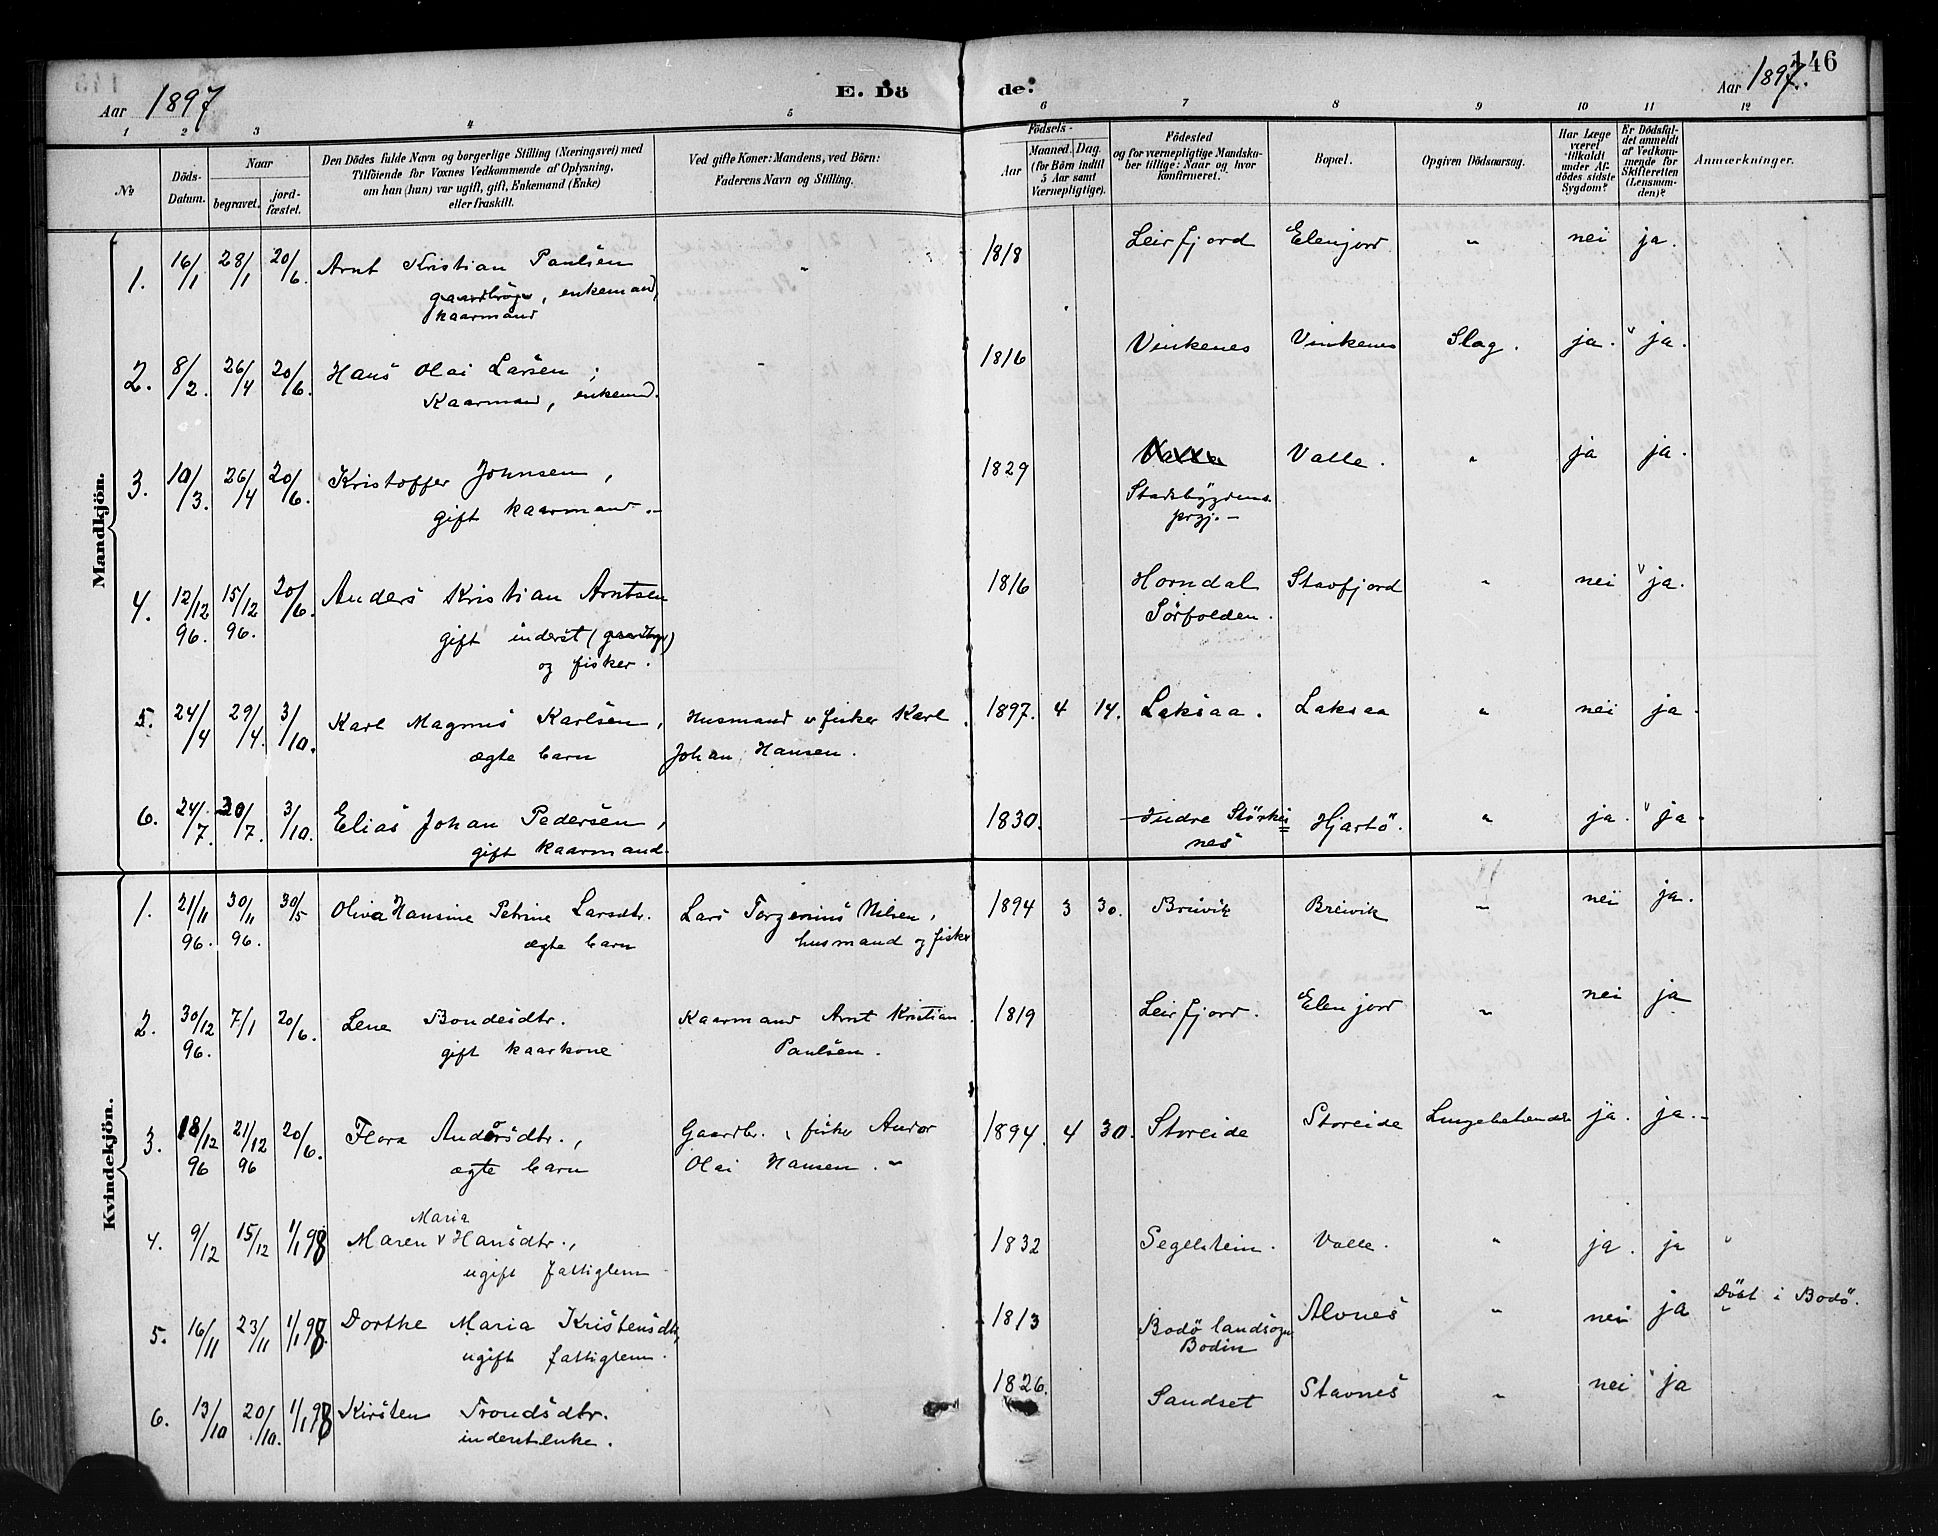 146
Aar 1897
E. Dö
de:
Aar 1897.
1 2 3 4 5
6 7 8 9 10 11 12
No
Döds-Datum.
Naar
begravet.
jordfæstet.
Den Dödes fulde Navn og borgerlige Stilling (Næringsvei) med
Tilföiende for Voxnes Vedkommende af Oplysning,
om han (hun) var ugift, gift, Enkemand (Enke)
eller fraskilt.
Ved gifte Koner: Mandens, ved Börn:
Faderens Navn og Stilling.
Födsels-
Aar
Maaned. Dag.
(for Börn indtil
5 Aar samt
Værnepligtige).
Födested
og for værnepligtige Mandskaber tillige: Naar og hvor
Konfirmeret.
Bopæl.
Opgiven Dödsaarsag.
Har Læge
været
tilkaldt
under Afdödes sidste
Sygdom?
Er Dödsfaldet anmeldt
af Vedkommende for
Skifteretten
(Lensmanden)?
Anmærkninger.
Mandkjön.
1. 16/1 28/1 20/6. Arnt Kristian Paulsen " 1818 Leirfjord Elenjord " nei ja.
gaardbrüger, enkemand,
kaarmand
2. 8/2. 26/4 20/6. Hans Olai Larsen, 1816 Vinkenes Vinkenes Slag. ja. ja.
Kaarmand, enkemd.
3. 10/3. 26/4 20/6. Kristoffer Johnsen, 1829 Valle. " ja ja.
gift kaarmand.- Stadsbygdens
prgj.-
4. 12/12 96. 15/12 96. 20/6. Anders Kristian Arntsen 1816 Horndal Stavfjord " nei ja.
gift inderst (gaardbrgr) Sörfolden.
og fisker.
5. 24/4 29/4. 3/10. Karl Magnus Karlsen, Husmand & fisker Karl 1897. 4 14. Laksaa. Laksaa " nei ja.
ægte barn Johan Hansen.
6. 24/7. 30/7 3/10. Elias Johan Pedersen, 1830. Indre Störkis= Hjartö. " ja. ja.
gift kaarmand. nes
Kvindekjön.
1. 21/11 96. 30/11 96. 30/5 Oliva Hansine Petrine Larsdtr. Lars Torgersius Nilsen, 1894 3 30. Breivik Breivik " nei ja.
ægte barn husmand og fisker
2. 30/12 96. 7/1 20/6. Lene Bondesdtr. Kaarmand Arnt Kristian 1819 Leirfjord. Elenjord " nei ja
gift kaarkone Paulsen.
3. 18/12 96 21/12 96 20/6. Flora Andorsdtr., Gaardbr. & fisker Andor 1894. 4 30. Storeide Storeide Lungebetændelse ja. ja.-
ægte barn Olai Hansen. "
Maria
4. 9/12 15/12 1/1 98 Maren v Hansdtr., 1832 Segelstein. Valle. " ja. ja "
ugift fattiglem
5. 16/11 23/11 1/1 98. Dorthe Maria Kristensdtr, 1813 Bodö landsogn Alvnes " nei ja Död i Bodö.
ugift fattiglem. Bodin
6. 13/10 20/10. 1/1 98 Kirsten Trondsdtr. 1826. Sandset Stavnes " nei ja
inderstenke.